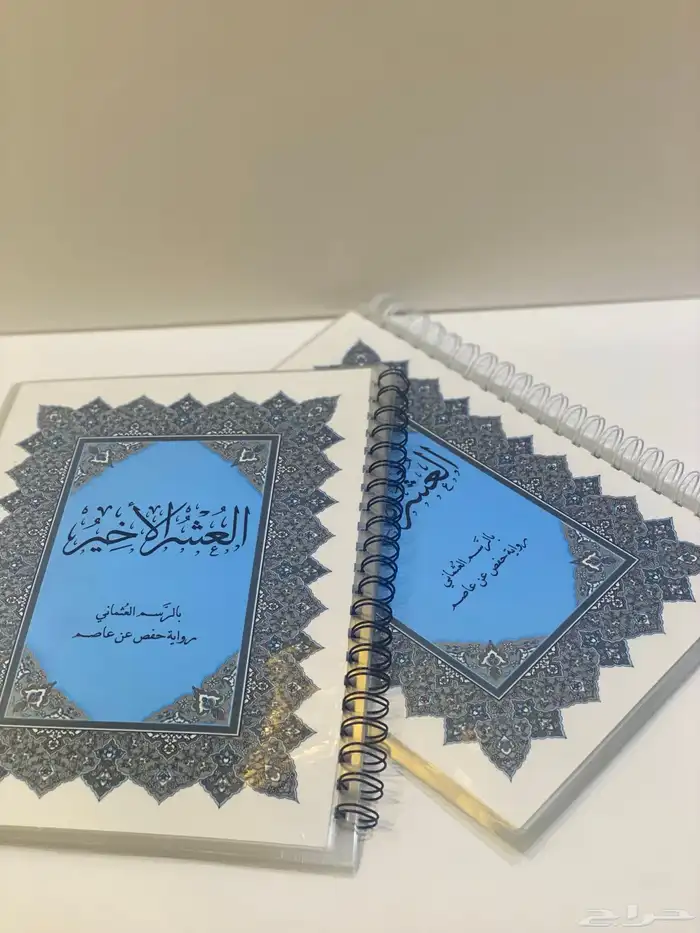 العُشر الأخير
بالرَّسم العُثماني
رواية حفص عن عاصم
العُشر
بالرَّسم العُثماني
رواية حفص عن عاصم
حراج